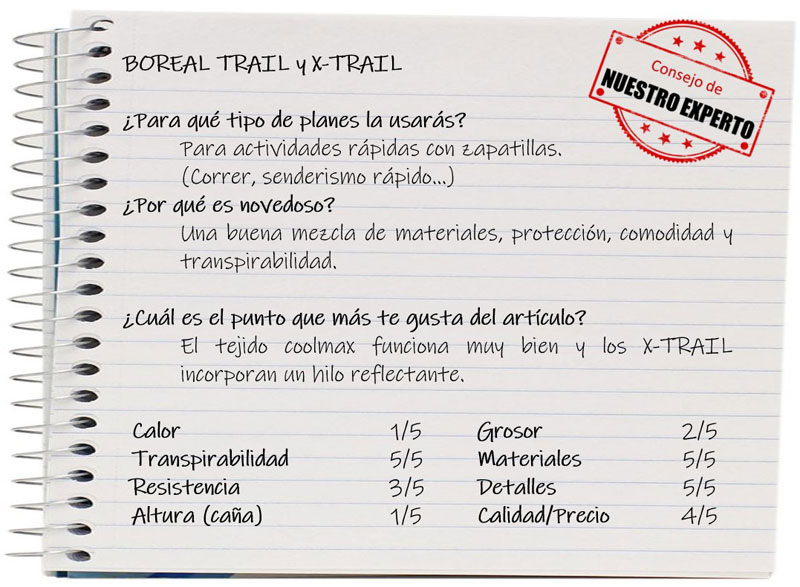 BOREAL TRAIL y X-TRAIL
Consejo de
NUESTRO EXPERTO
¿Para qué tipo de planes la usarás?
Para actividades rápidas con zapatillas.
(Correr, senderismo rápido...)
¿Por qué es novedoso?
Una buena mezcla de materiales, protección, comodidad y
transpirabilidad.
¿Cuál es el punto que más te gusta del artículo?
El tejido coolmax funciona muy bien y los X-TRAIL
incorporan un hilo reflectante.
Calor 1/5 Grosor 2/5
Transpirabilidad 5/5 Materiales 5/5
Resistencia 3/5 Detalles 5/5
Altura (caña) 1/5 Calidad/Precio 4/5